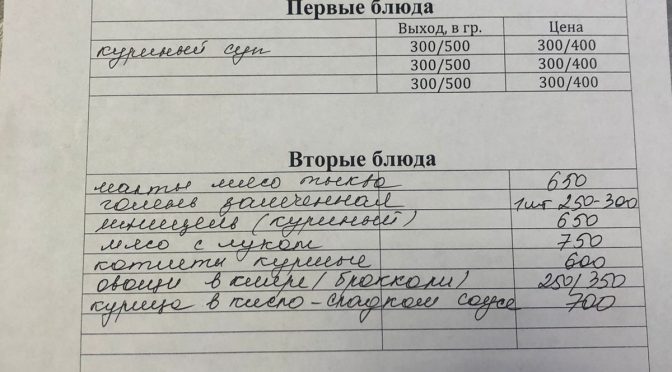 Первые блюда
Выход, в гр. Цена
куриный суп 300/500 300/400
300/500 300/400
300/500 300/400
Вторые блюда
манты мясо тыква 650
голень запеченная 1шт 250-300
шницель (куриный) 650
мясо с луком 750
котлеты куриные 600
овощи в кляре (брокколи) 250/350
курица в кисло-сладком соусе 700